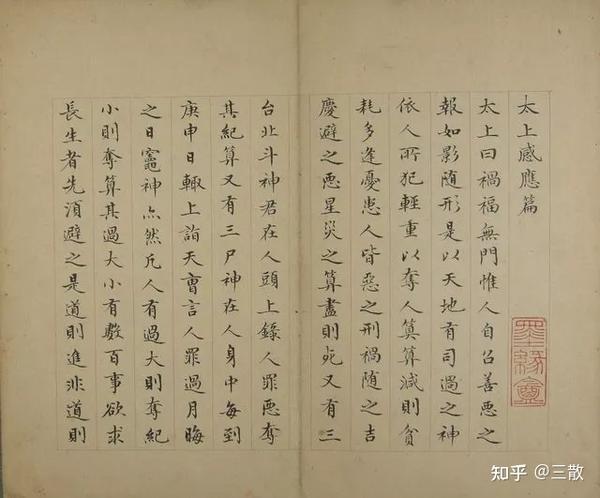 太上感應篇
太上曰禍福無門惟人自召善惡之
報如影隨形是以天地有司過之神
依人所犯輕重以奪人算算減則貧
耗多逢憂患人皆惡之刑禍隨之吉
慶避之惡星災之算盡則死又有三
台北斗神君在人頭上錄人罪惡奪
其紀算又有三尸神在人身中每到
庚申日輒上詣天曹言人罪過月晦
之日竈神亦然凡人有過大則奪紀
小則奪算其過大小有數百事欲求
長生者先須避之是道則進非道則
墨緣盦
知乎 @三散